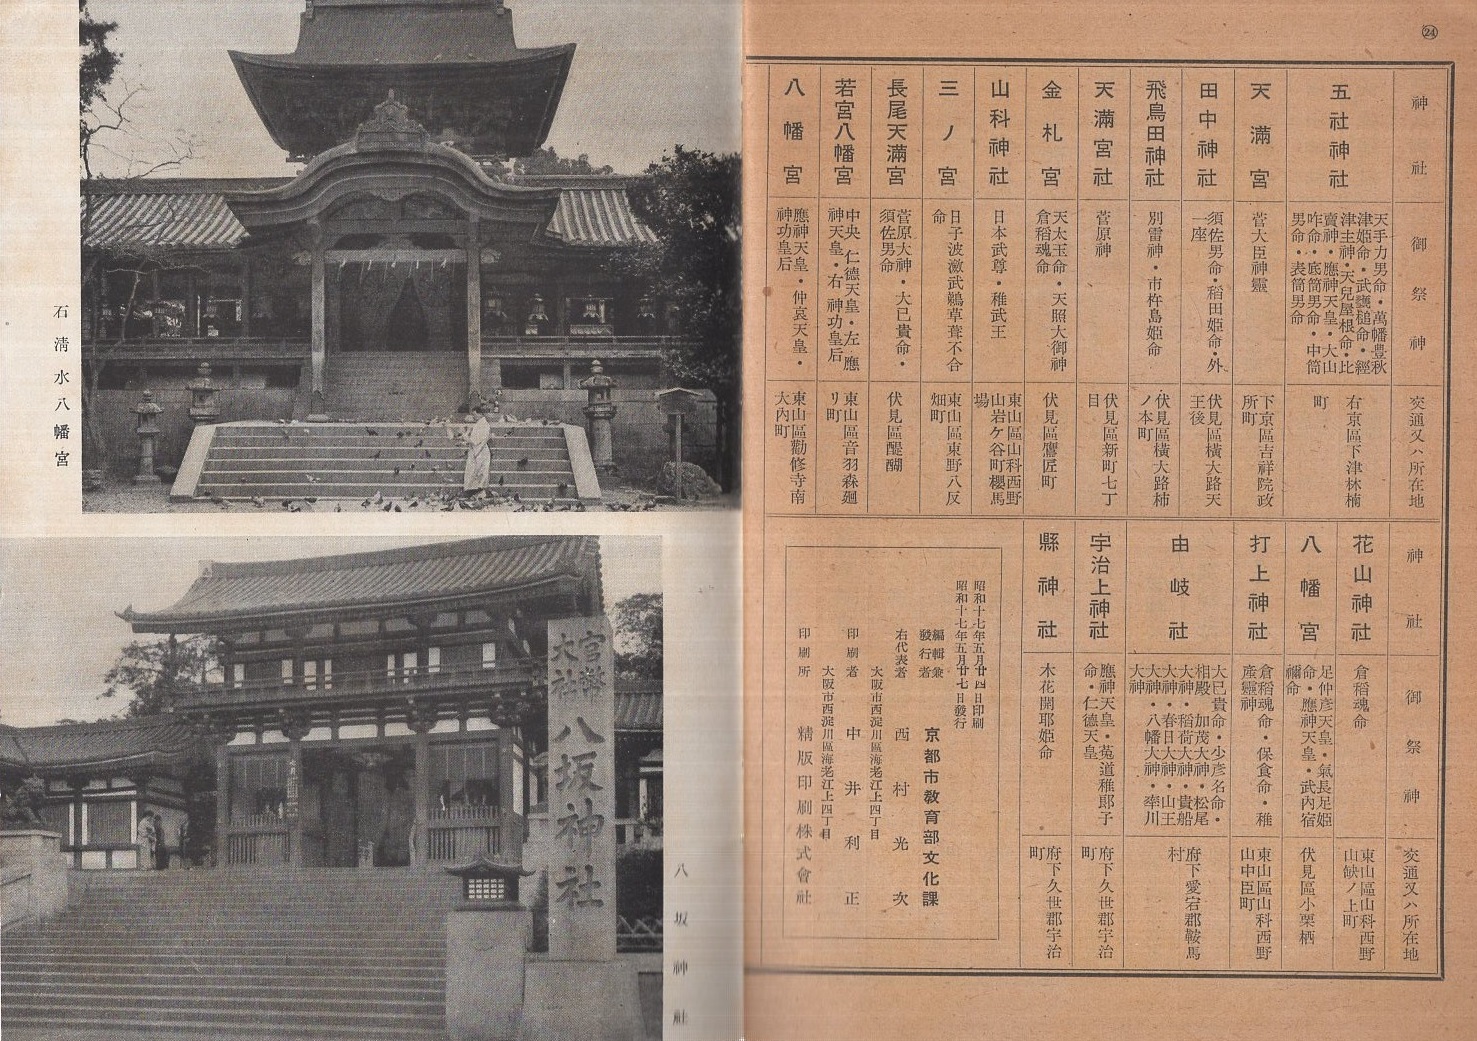 ㉔
神社
御祭神
交通又ハ所在地
五社神社
天手力男命・萬幡豊秋
津姫命・武甕槌命・經
津主神・天兒屋根命・比
賣神・應神天皇・大山
咋命・底筒男命・中筒
男命・表筒男命
右京區下津林楠
町
天滿宮
菅大臣神靈
下京區吉祥院政
所町
田中神社
須佐男命・稻田姫命・外
一座
伏見區横大路天
王後
飛鳥田神社
別雷神・市杵島姫命
伏見區横大路柿
ノ本町
天滿宮社
菅原神
伏見區新町七丁
目
金札宮
天太玉命・天照大御神
倉稻魂命
伏見區鷹匠町
山科神社
日本武尊・稚武王
東山區山科西野
山岩ケ谷町櫻馬
場
三ノ宮
日子波瀲武鵜草葺不合
命
東山區東野八反
畑町
長尾天滿宮
菅原大神・大已貴命・
須佐男命
伏見區醍醐
若宮八幡宮
中央 仁德天皇・左 應
神天皇・右 神功皇后
東山區音羽森廻
リ町
八幡宮
應神天皇・仲哀天皇・
神功皇后
東山區勸修寺南
大内町
神社
御祭神
交通又ハ所在地
花山神社
倉稻魂命
東山區山科西野
山缺ノ上町
八幡宮
足仲彦天皇・氣長足姫
命・應神天皇・武内宿
禰命
伏見區小栗栖
打上神社
倉稻魂命・保食命・稚
産靈神
東山區山科西野
山中臣町
由岐社
大已貴命・少彦名命・
相殿 加茂大神・松尾
大神・稻荷大神・貴船
大神・春日大神・山王
大神・八幡大神・率川
大神
府下愛宕郡鞍馬
村
宇治上神社
應神天皇・莵道稚郎子
命・仁德天皇
府下久世郡宇治
町
縣神社
木花開耶姫命
府下久世郡宇治
町
昭和十七年五月廿四日印刷
昭和十七年五月廿七日發行
編輯兼
發行者 京都市教育部文化課
右代表者 西村光次
大阪市西淀川區海老江上四丁目
印刷者 中井利正
大阪市西淀川區海老江上四丁目
印刷所 精版印刷株式會社
石清水八幡宮
官幣
大社
八坂神社
八坂神社